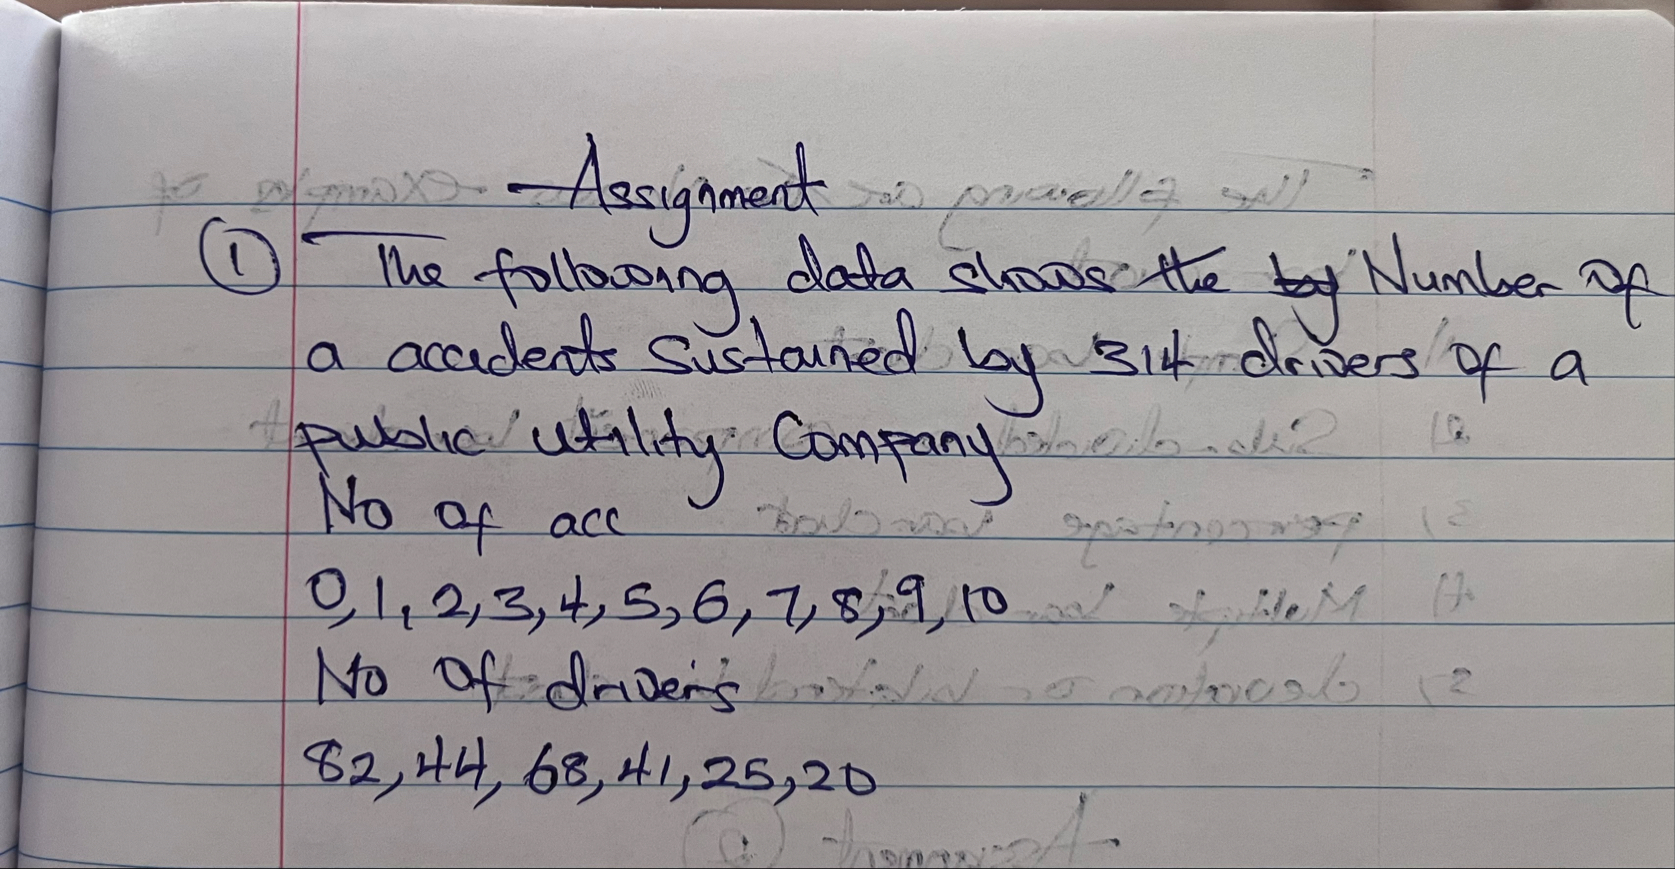 Assignment
① The following data shows the by Number of
a accidents sustained by 314 drivers of a
public utility Company
No of acc
0, 1, 2, 3, 4, 5, 6, 7, 8, 9, 10
No of drivers
82, 44, 68, 41, 25, 20